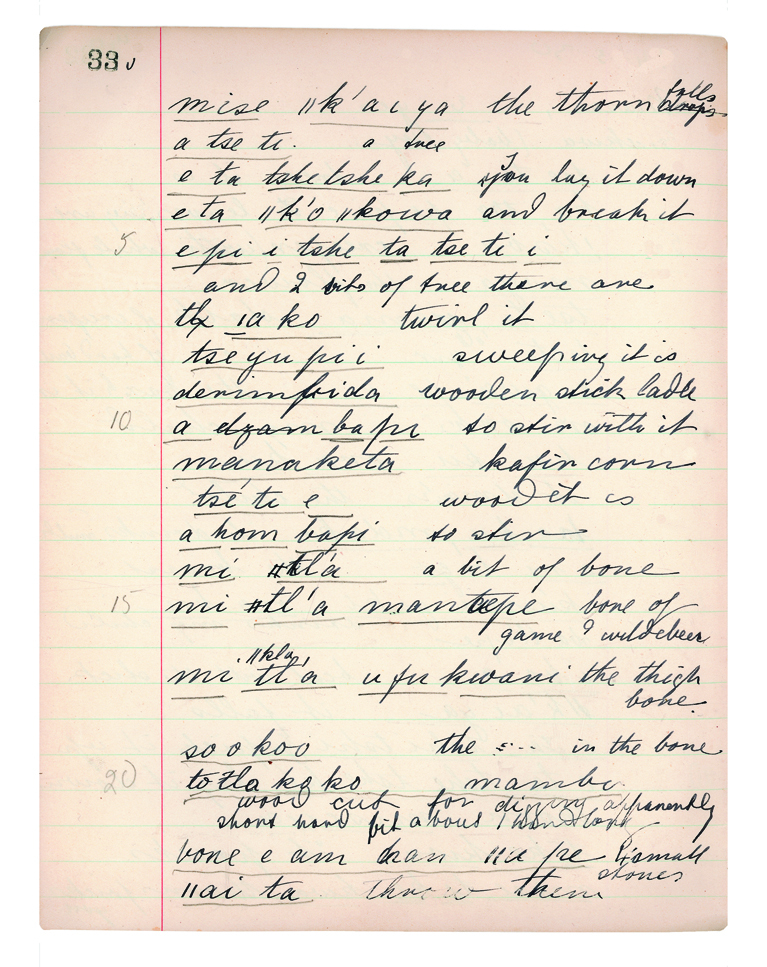 33
mise ǁk'aı ya the thorn falls drops
a tse ti. a tree
e ta tshe tshe ka you lay it down
e ta ǁk'o ǁkowa and break it
5
e pi i tshe ta tse ti i
and 2 bits of tree there are
ıa ko twirl it
tse yu pi i sweeping it is
wooden stick ladle
10
a dzam bapi to stir with it
manaketa kafir corn
tsé ti e wood it is
a hom bapi to stir
mi ǂtl'a a bit of bone
15
mi ǂtl'a bone of
game ? wildebeer
ǁkla
mi tl'a u fu kwani the thigh
bone.
so o koo the .... in the bone
20
ko ko mambo
wood cut for digging apparently
short hard bit about 1 hand long
bone e am ǁa pe 4 small
stones
ǁai ta throw them